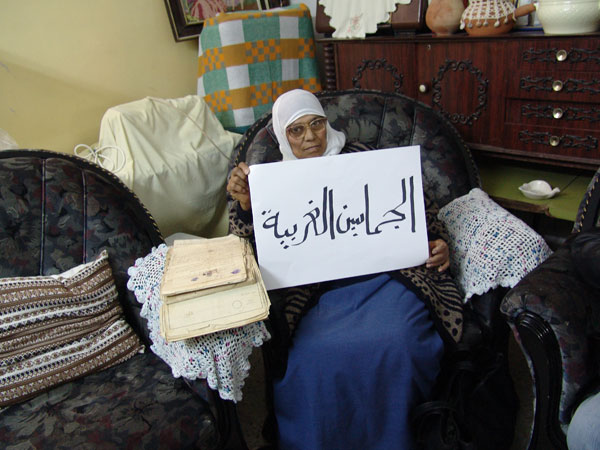 الجماسين الغربية